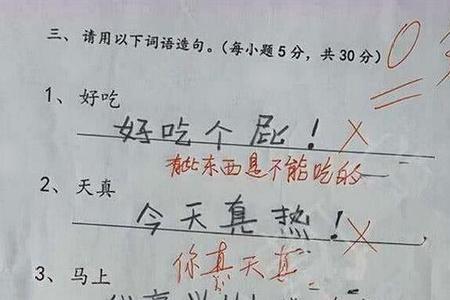 三、请用以下词语造句。(每小题5分，共30分)
0
1、好吃
好吃个屁！
有些东西是不能吃的
2、天真
今天真热！
你真天真
3、马上